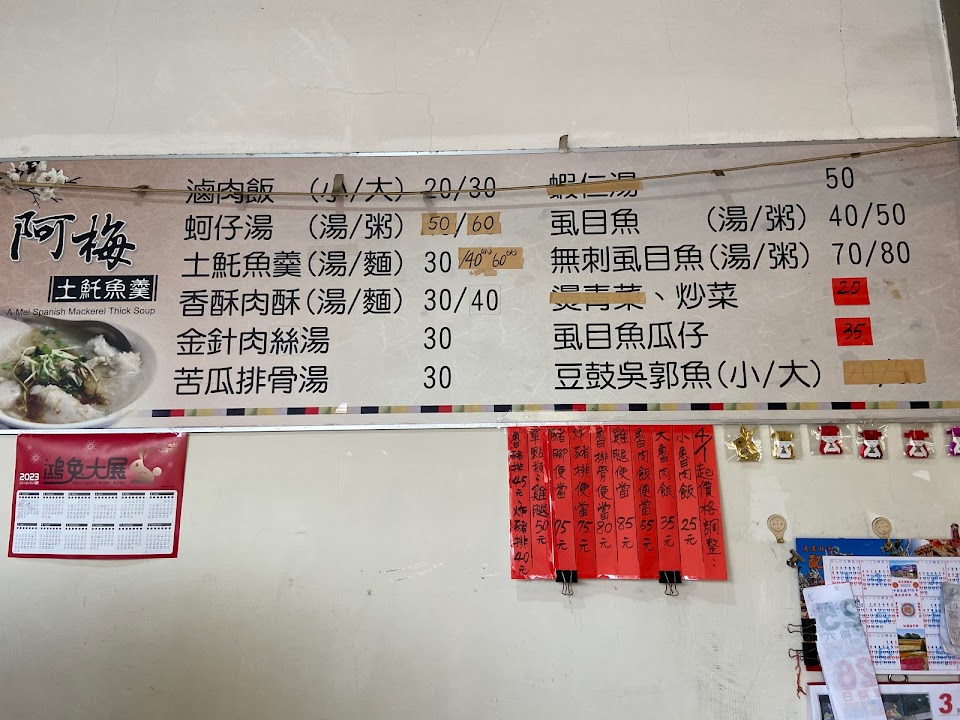 阿梅
土魠魚羹
A-Mei Spanish Mackerel Thick Soup
滷肉飯 (小/大) 20/30
蚵仔湯 (湯/粥) 50/60
土魠魚羹(湯/麵) 30/40(小)60(大)
香酥肉酥(湯/麵) 30/40
金針肉絲湯 30
苦瓜排骨湯 30
蝦仁湯 50
虱目魚 (湯/粥) 40/50
無刺虱目魚(湯/粥) 70/80
燙青菜、炒菜 20
虱目魚瓜仔 35
豆鼓吳郭魚(小/大)
2023
鴻兔大展
4/1起價格調整:
小魯肉飯 25元
大魯肉飯 35元
魯肉飯便當 55元
雞腿便當 85元
香排骨便當 80元
炸豬排便當 75元
豬腳便當 75元
單點類:雞腿50元
香豬排45元、炸豬排40元
26
3